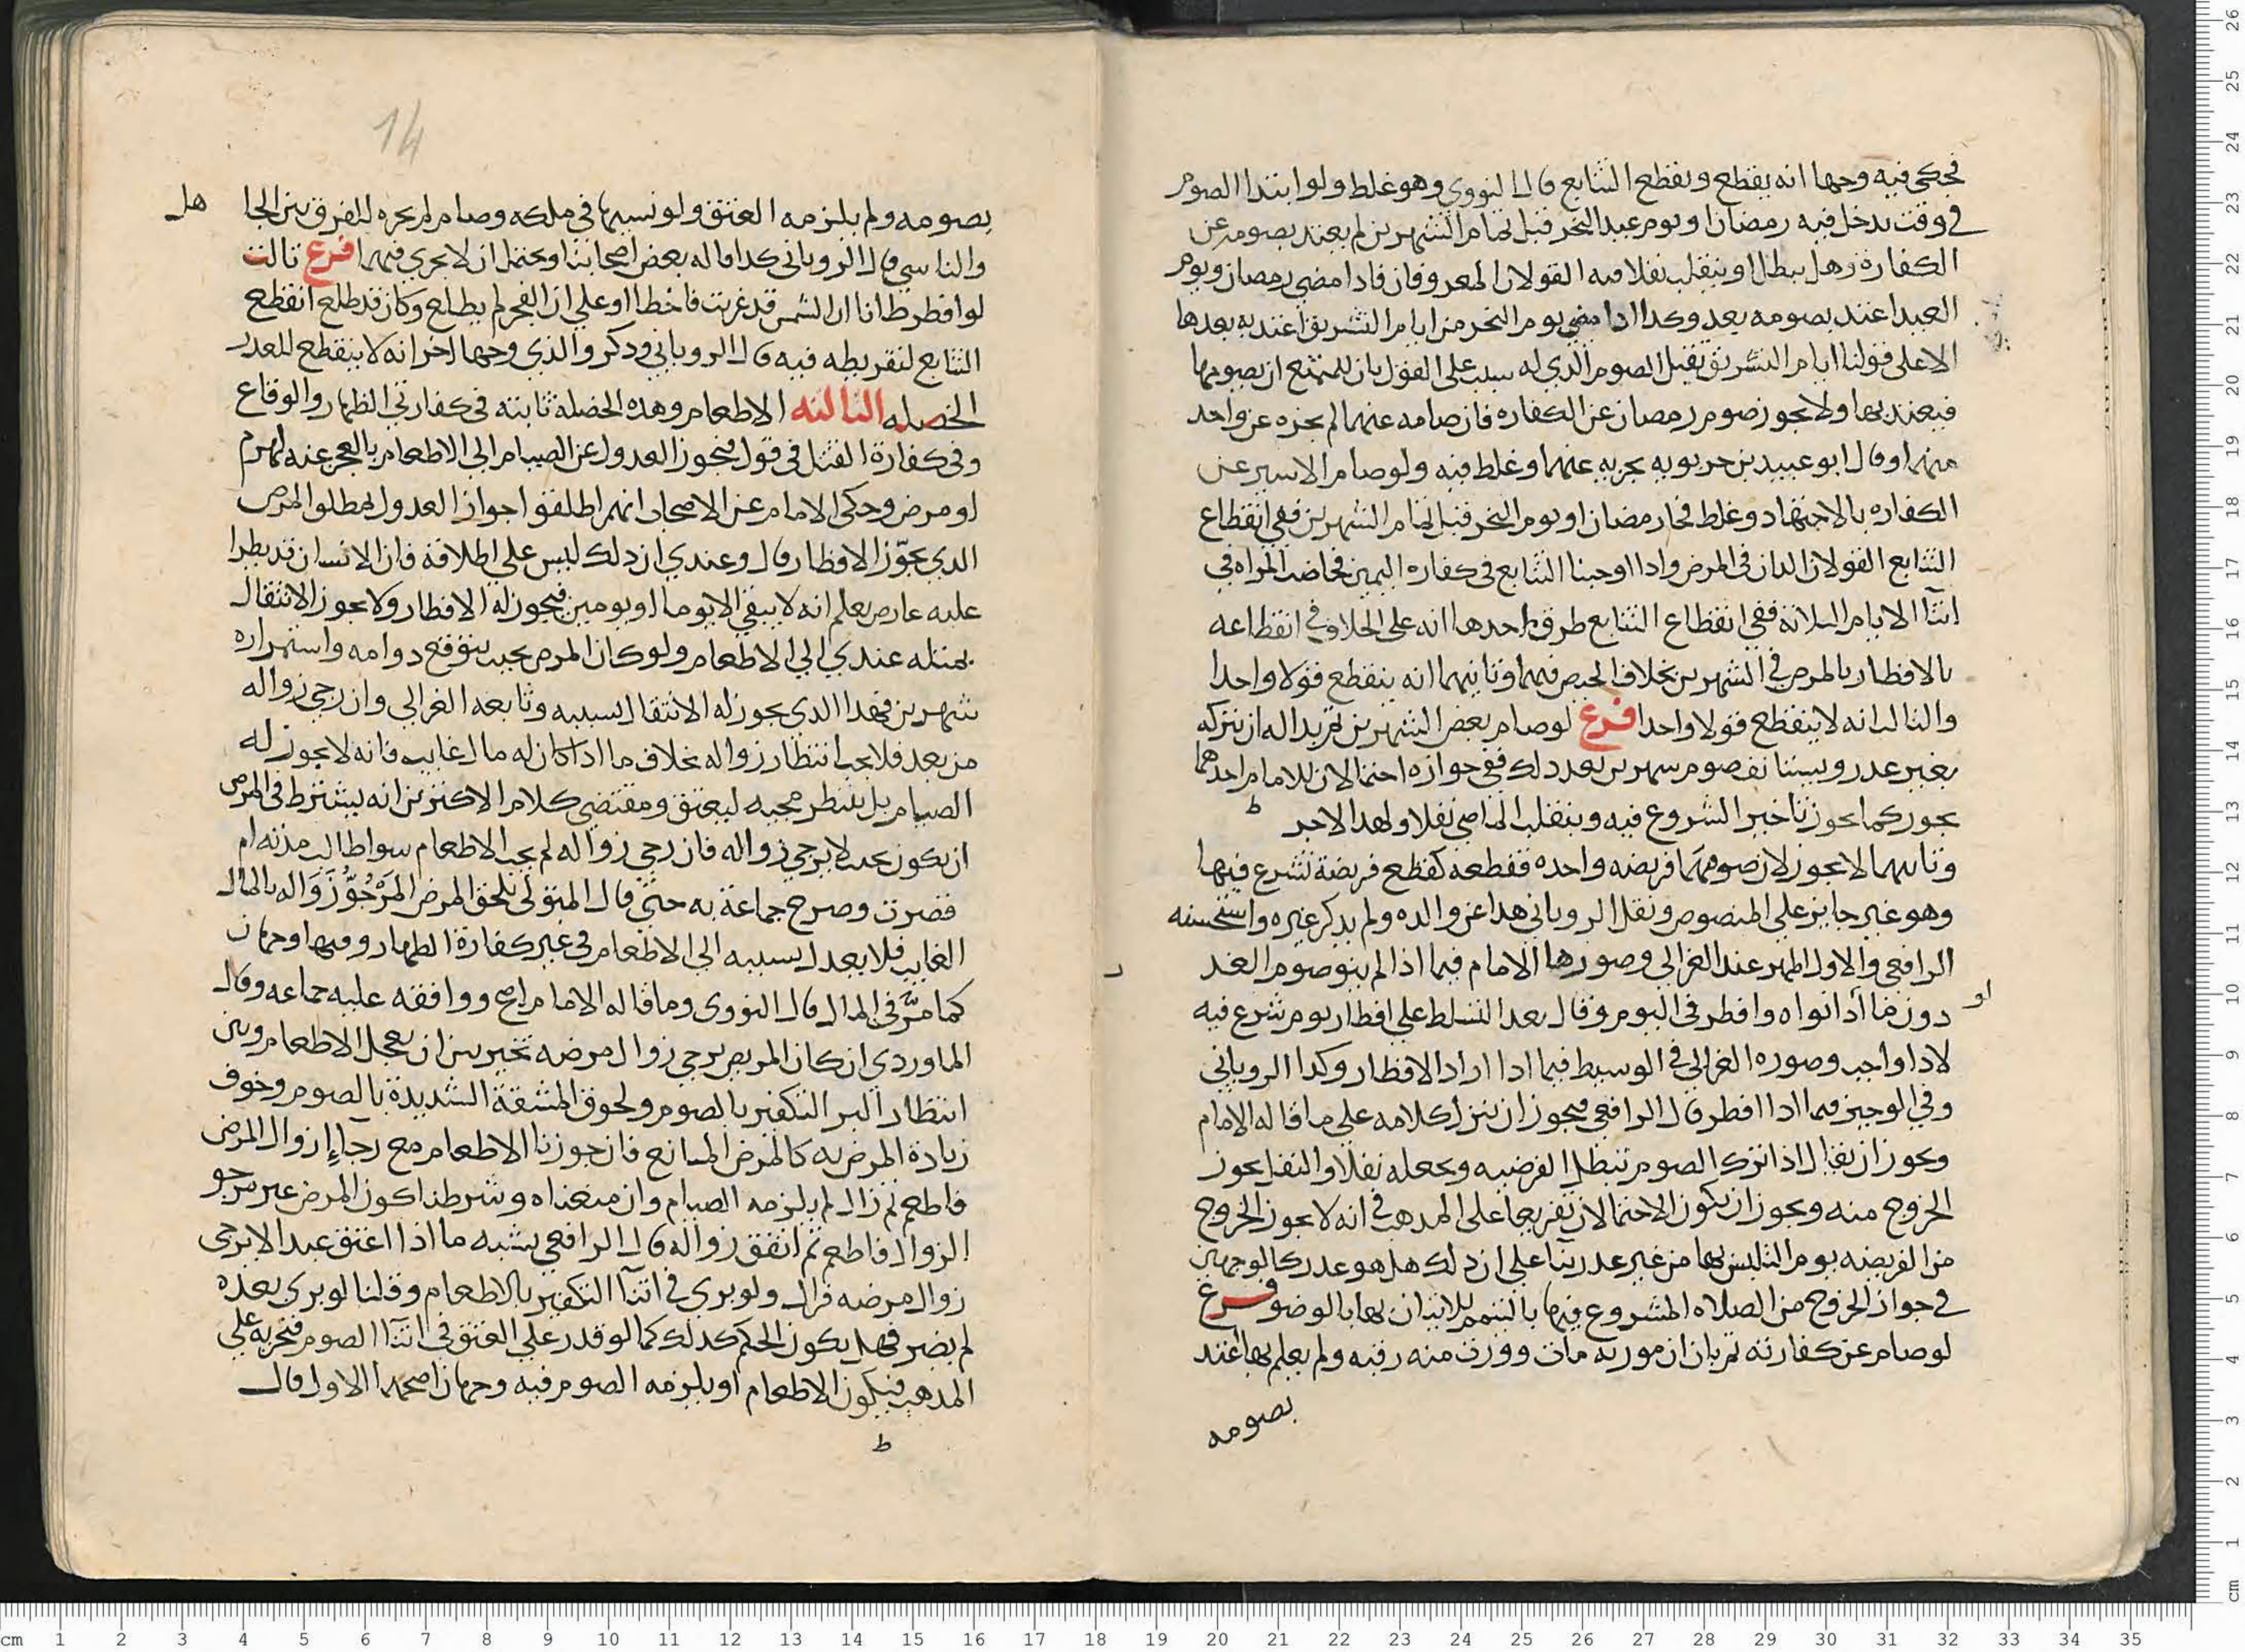 فحكى فيه وجها انه يقطع ويقطع التتابع قال النووي وهو غلط ولو ابتدا الصوم
في وقت يدخل فيه رمضان او يوم عيد النحر قبل تمام الشهرين لم يعتد بصومه عن
الكفارة وهل يبطل او ينقلب نفلا فيه القولان المعروفان فاذا مضى رمضان ويوم
العيد اعتد بصومه بعد وكذا اذا مضى يوم النحر من ايام التشريق اعتد به بعدها
الا على قولنا ايام التشريق تقبل الصوم الذي له سبب على القول بان للمتمتع ان يصومها
فيعتد بها ولا يجوز صوم رمضان عن الكفاره فان صامه عنهما لم يجزه عن واحد
منهما وقال ابو عبيد بن حربويه يجزيه عنهما وغلط فيه ولو صام الاسير عن
الكفاره بالاجتهاد وغلط فجا رمضان او يوم النحر قبل تمام الشهرين ففي انقطاع
التتابع القولان اللذان في المرض واذا اوجبنا التتابع في كفاره اليمين فحاضت المراه في
اثنا الايام الثلاثه ففي انقطاع التتابع طرق احدها انه على الخلاف في انقطاعه
بالافطار بالمرض في الشهرين بخلاف الحيض فيهما وثانيهما انه ينقطع قولا واحدا
والثالث انه لا ينقطع قولا واحدا فرع لو صام بعض الشهرين ثم بدا له ان يتركه
بغير عذر ويستانف صوم شهرين بعد ذلك ففي جوازه احتمالان للامام احدهما
يجوز كما يجوز تاخير الشروع فيه وينقلب الماضي نفلا ولهذا الاخير
وثانيهما لا يجوز لان صومهما فريضه واحده فقطعه كقطع فريضة تشرع فيها
وهو غير جايز على المنصوص ونقل الروياني هذا عن والده ولم يذكر غيره واستحسنه
الرافعي والاول اظهر عند الغزالي وصورها الامام فيما اذا لم ينو صوم الغد
او
دون ما اذا نواه وافطر في اليوم وقال يعد التسلط على افطار يوم شرع فيه
لادا واجب وصوره الغزالي في الوسيط فيما اذا اراد الافطار وكذا الروياني
وفي الوجيز فيما اذا افطر قال الرافعي فيجوز ان ينزل كلامه على ما قاله الامام
ويجوز ان يقال اذا ترك الصوم تبطل الفرضيه ويجعله نفلا والنفل يجوز
الخروج منه ويجوز ان يكون الاحتمالان تفريعا على المذهب في انه لا يجوز الخروج
من الفريضه يوم التلبس بها من غير عذر بنا على ان ذلك هل هو عذر كالوجهين
في جواز الخروج من الصلاه المشروع فيها بالتيمم للاتيان بها بالوضو فرع
لو صام عن كفارته ثم بان ان مورثه مات وورث منه رقبه ولم يعلم بها اعتد
بصومه
14
هل
بصومه ولم يلزمه العتق ولو نسيها في ملكه وصام لم يجزه للفرق بين الجا
والناسي قال الروياني كذا قاله بعض اصحابنا ويحتمل ان لا يجزي فيهما فرع ثالث
لو افطر ظانا ان الشمس قد غربت فاخطا او على ان الفجر لم يطلع وكان قد طلع انقطع
التتابع لتفريطه فيه قال الروياني وذكر والدي وجها اخر انه لا ينقطع للعذر
الخصله الثالثه الاطعام وهذه الخصلة ثابته في كفارتي الظهار والوقاع
وفي كفارة القتل في قول فيجوز العدول عن الصيام الى الاطعام بالعجز عنه لهرم
او مرض وحكى الامام عن الاصحاب انهم اطلقوا جواز العدول لمطلق المرض
الذي يجوّز الافطار قال وعندي ان ذلك ليس على اطلاقه فان الانسان قد يطرا
عليه عارض يعلم انه لا يبقى الا يوما او يومين فيجوز له الافطار ولا يجوز الانتقال
بمثله عندي الى الاطعام ولو كان المرض بحيث يتوقع دوامه واستمراره
شهرين فهذا الذي يجوز له الانتقال بسببه وتابعه الغزالي وان رجي زواله
من بعد فلا يجب انتظار زواله بخلاف ما اذا كان له مال غايب فانه لا يجوز له
الصيام بل ينتظر مجيه ليعتق ومقتضى كلام الاكثرين انه يشترط في المرض
ان يكون بحيث لا يرجى زواله فان رجي زواله لم يجب الاطعام سوا طالت مدته ام
قصرت وصرح جماعة به حتى قال المتولي يلحق المرض المَرْجُوّ زَوَاله بالمال
الغايب فلا يعدل بسببه الى الاطعام في غير كفارة الظهار وفيها وجهان
كما مرّ في المال قال النووي وما قاله الامام اصح ووافقه عليه جماعه وقال
الماوردي ان كان المريض يرجى زوال مرضه تخير بين ان يعجل الاطعام وبين
انتظار البر التكفير بالصوم ولحوق المشقة الشديدة بالصوم وخوف
زيادة المرض به كالمرض المانع فان جوزنا الاطعام مع رجاء زوال المرض
فاطعم ثم زال لم يلزمه الصيام وان منعناه وشرطنا كون المرض غير مرجو
الزوال فاطعم ثم اتفق زواله قال الرافعي يشبه ما اذا اعتق عبدا لا يرجى
زوال مرضه فزال ولو بري في اثنا التكفير بالاطعام وقلنا لو بري بعده
لم يضر فهل يكون الحكم كذلك كما لو قدر على العتق في اثنا الصوم فيجزيه على
المذهب فيكون الاطعام او يلزمه الصوم فيه وجهان اصحهما الاول قال
ط